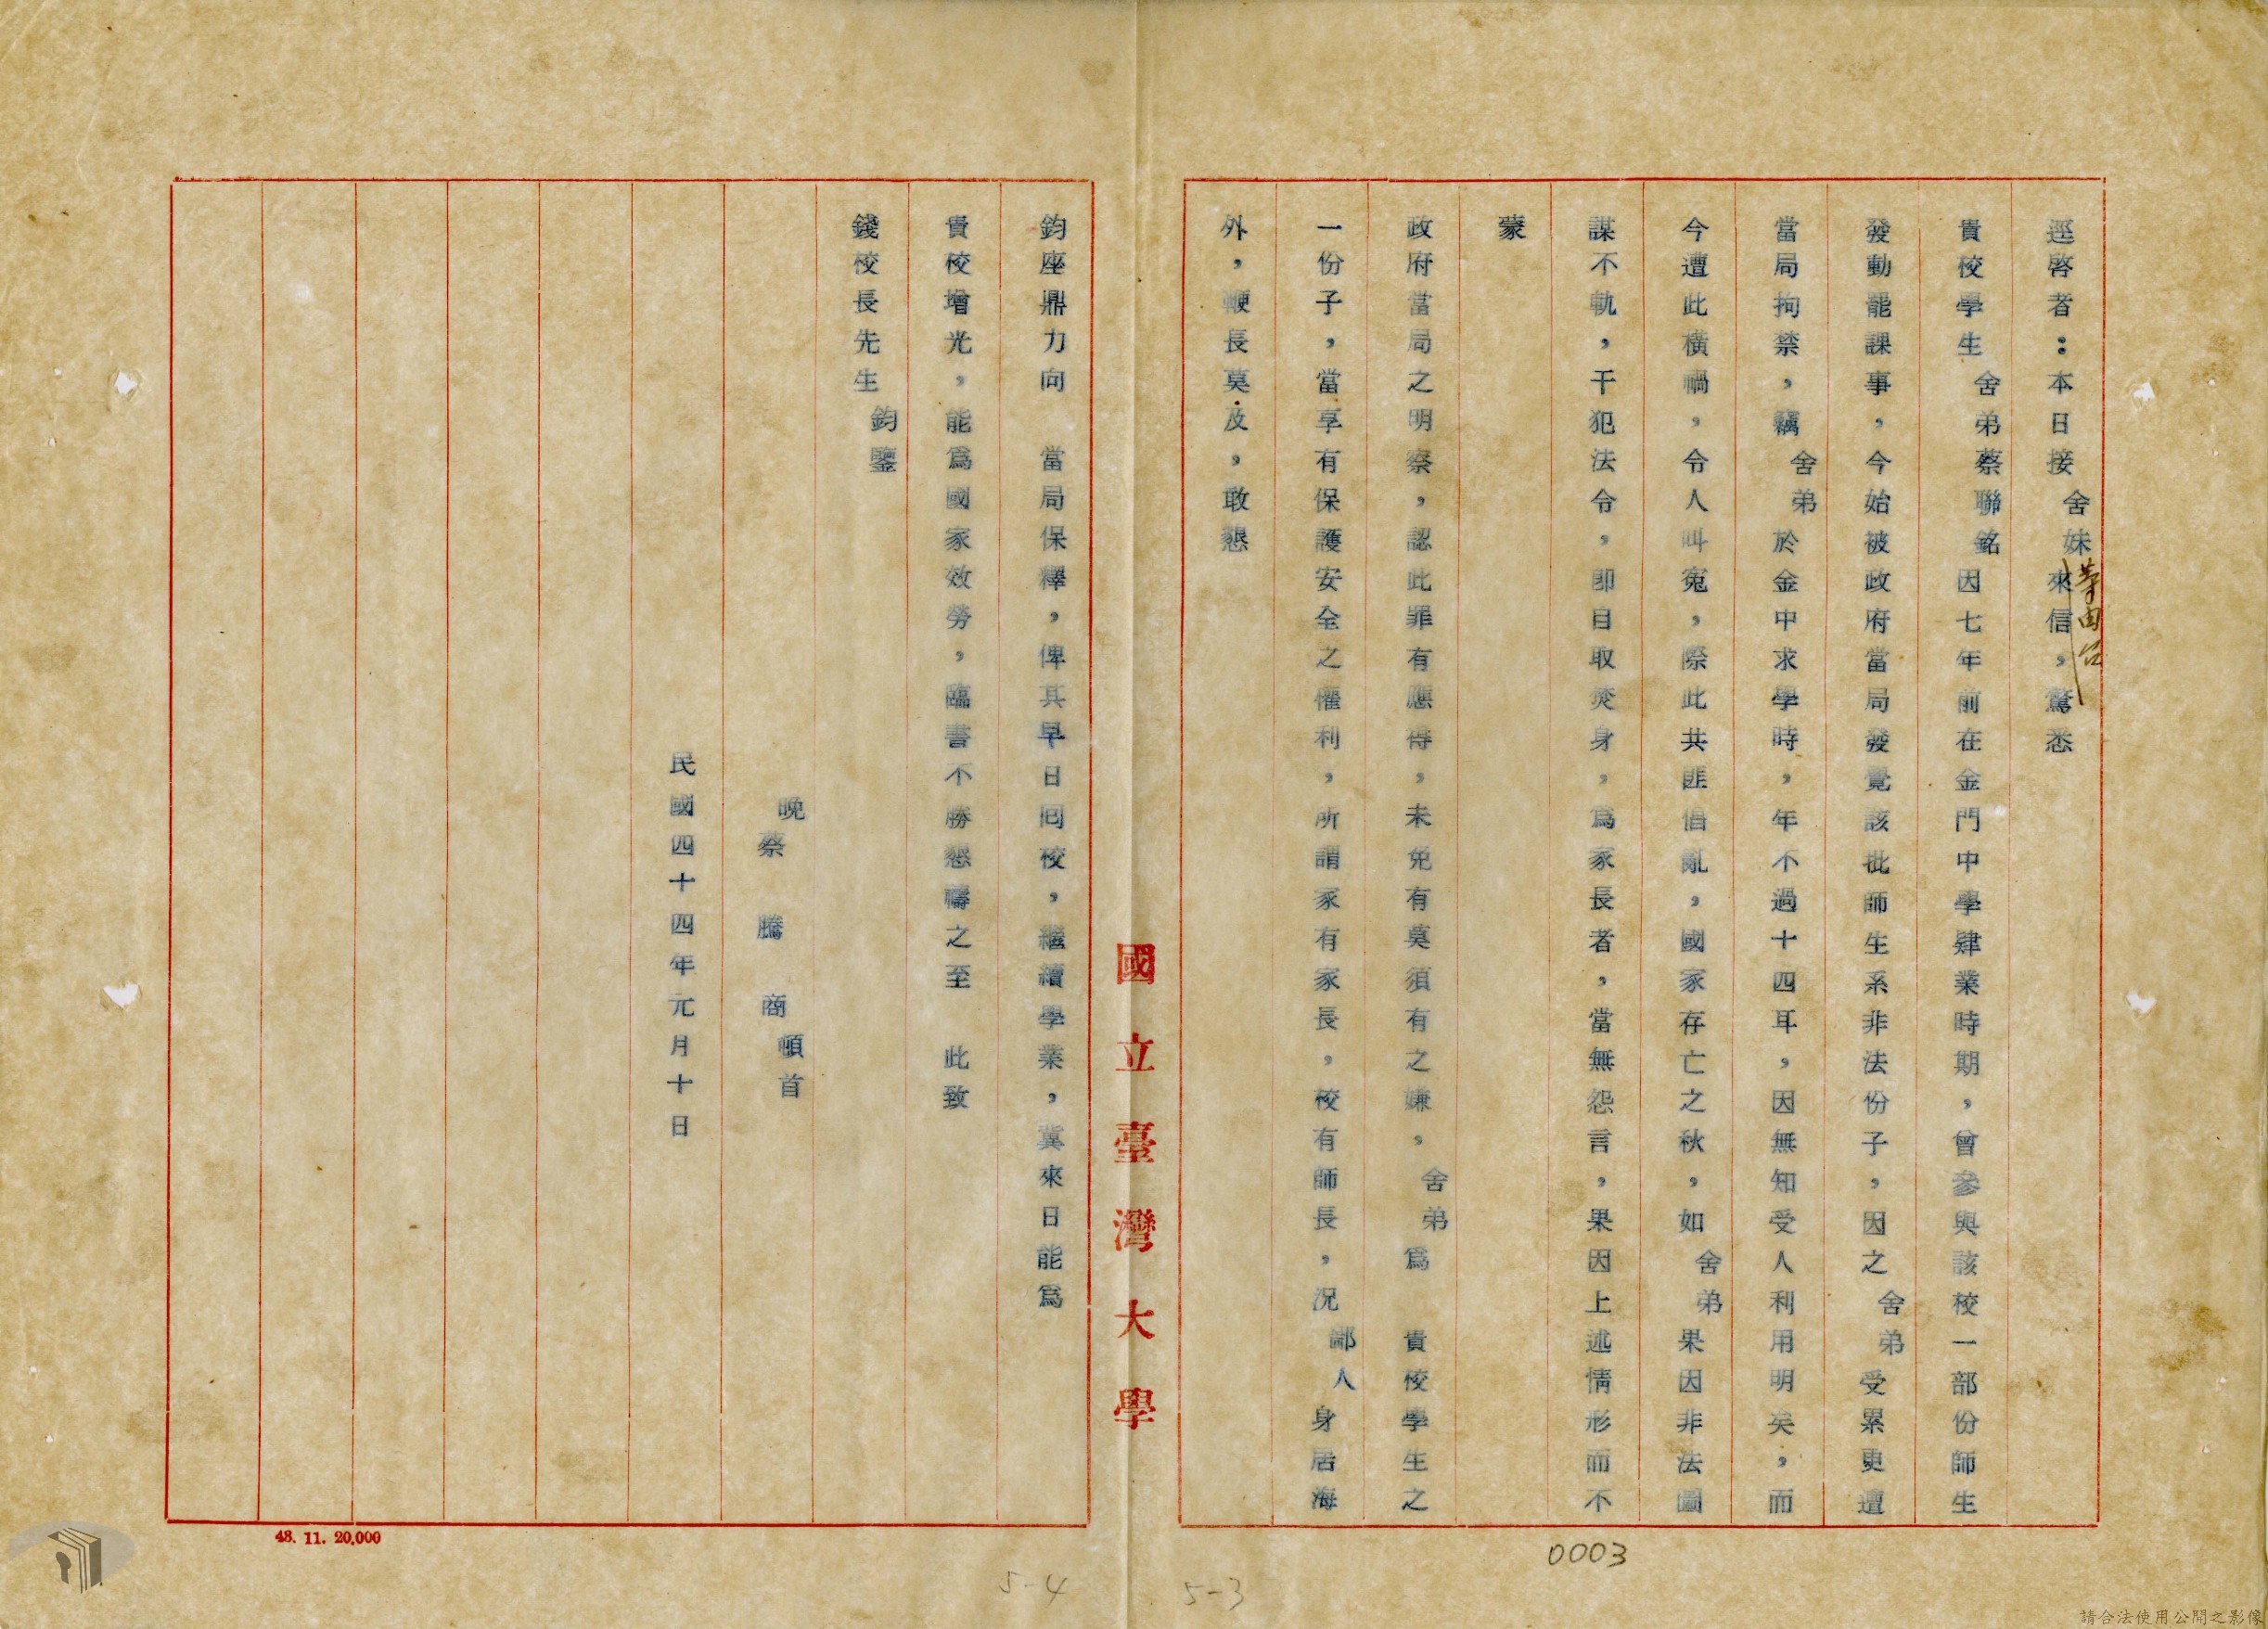 逕啓者：本日接舍妹來信，驚悉
貴校學生舍弟蔡聯銘因七年前在金門中學肄業時期，曾參與該校一部份師生
發動罷課事，今始被政府當局發覺該批師生系非法份子，因之舍弟受累更遭
當局拘禁，竊舍弟於金中求學時，年不過十四耳，因無知受人利用明矣，而
今遭此橫禍，令人叫寃，際此共匪倡亂，國家存亡之秋，如舍弟果因非法圖
謀不軌，干犯法令，卽自取焚身，爲家長者，當無怨言，果因上述情形而不
蒙
政府當局之明察，認此罪有應得，未免有莫須有之嫌，舍弟爲　貴校學生之
一份子，當享有保護安全之權利，所謂家有家長，校有師長，況鄙人身居海
外，鞭長莫及，敢懇
鈞座鼎力向　當局保釋，俾其早日囘校，繼續學業，冀來日能爲
貴校增光，能爲國家效勞，臨書不勝懇禱之至　此致
錢校長先生鈞鑒
晚蔡騰商頓首
民國四十四年元月十日
國立臺灣大學
43. 11. 20.000
0003
5-4
5-3
請合法使用公開之影像